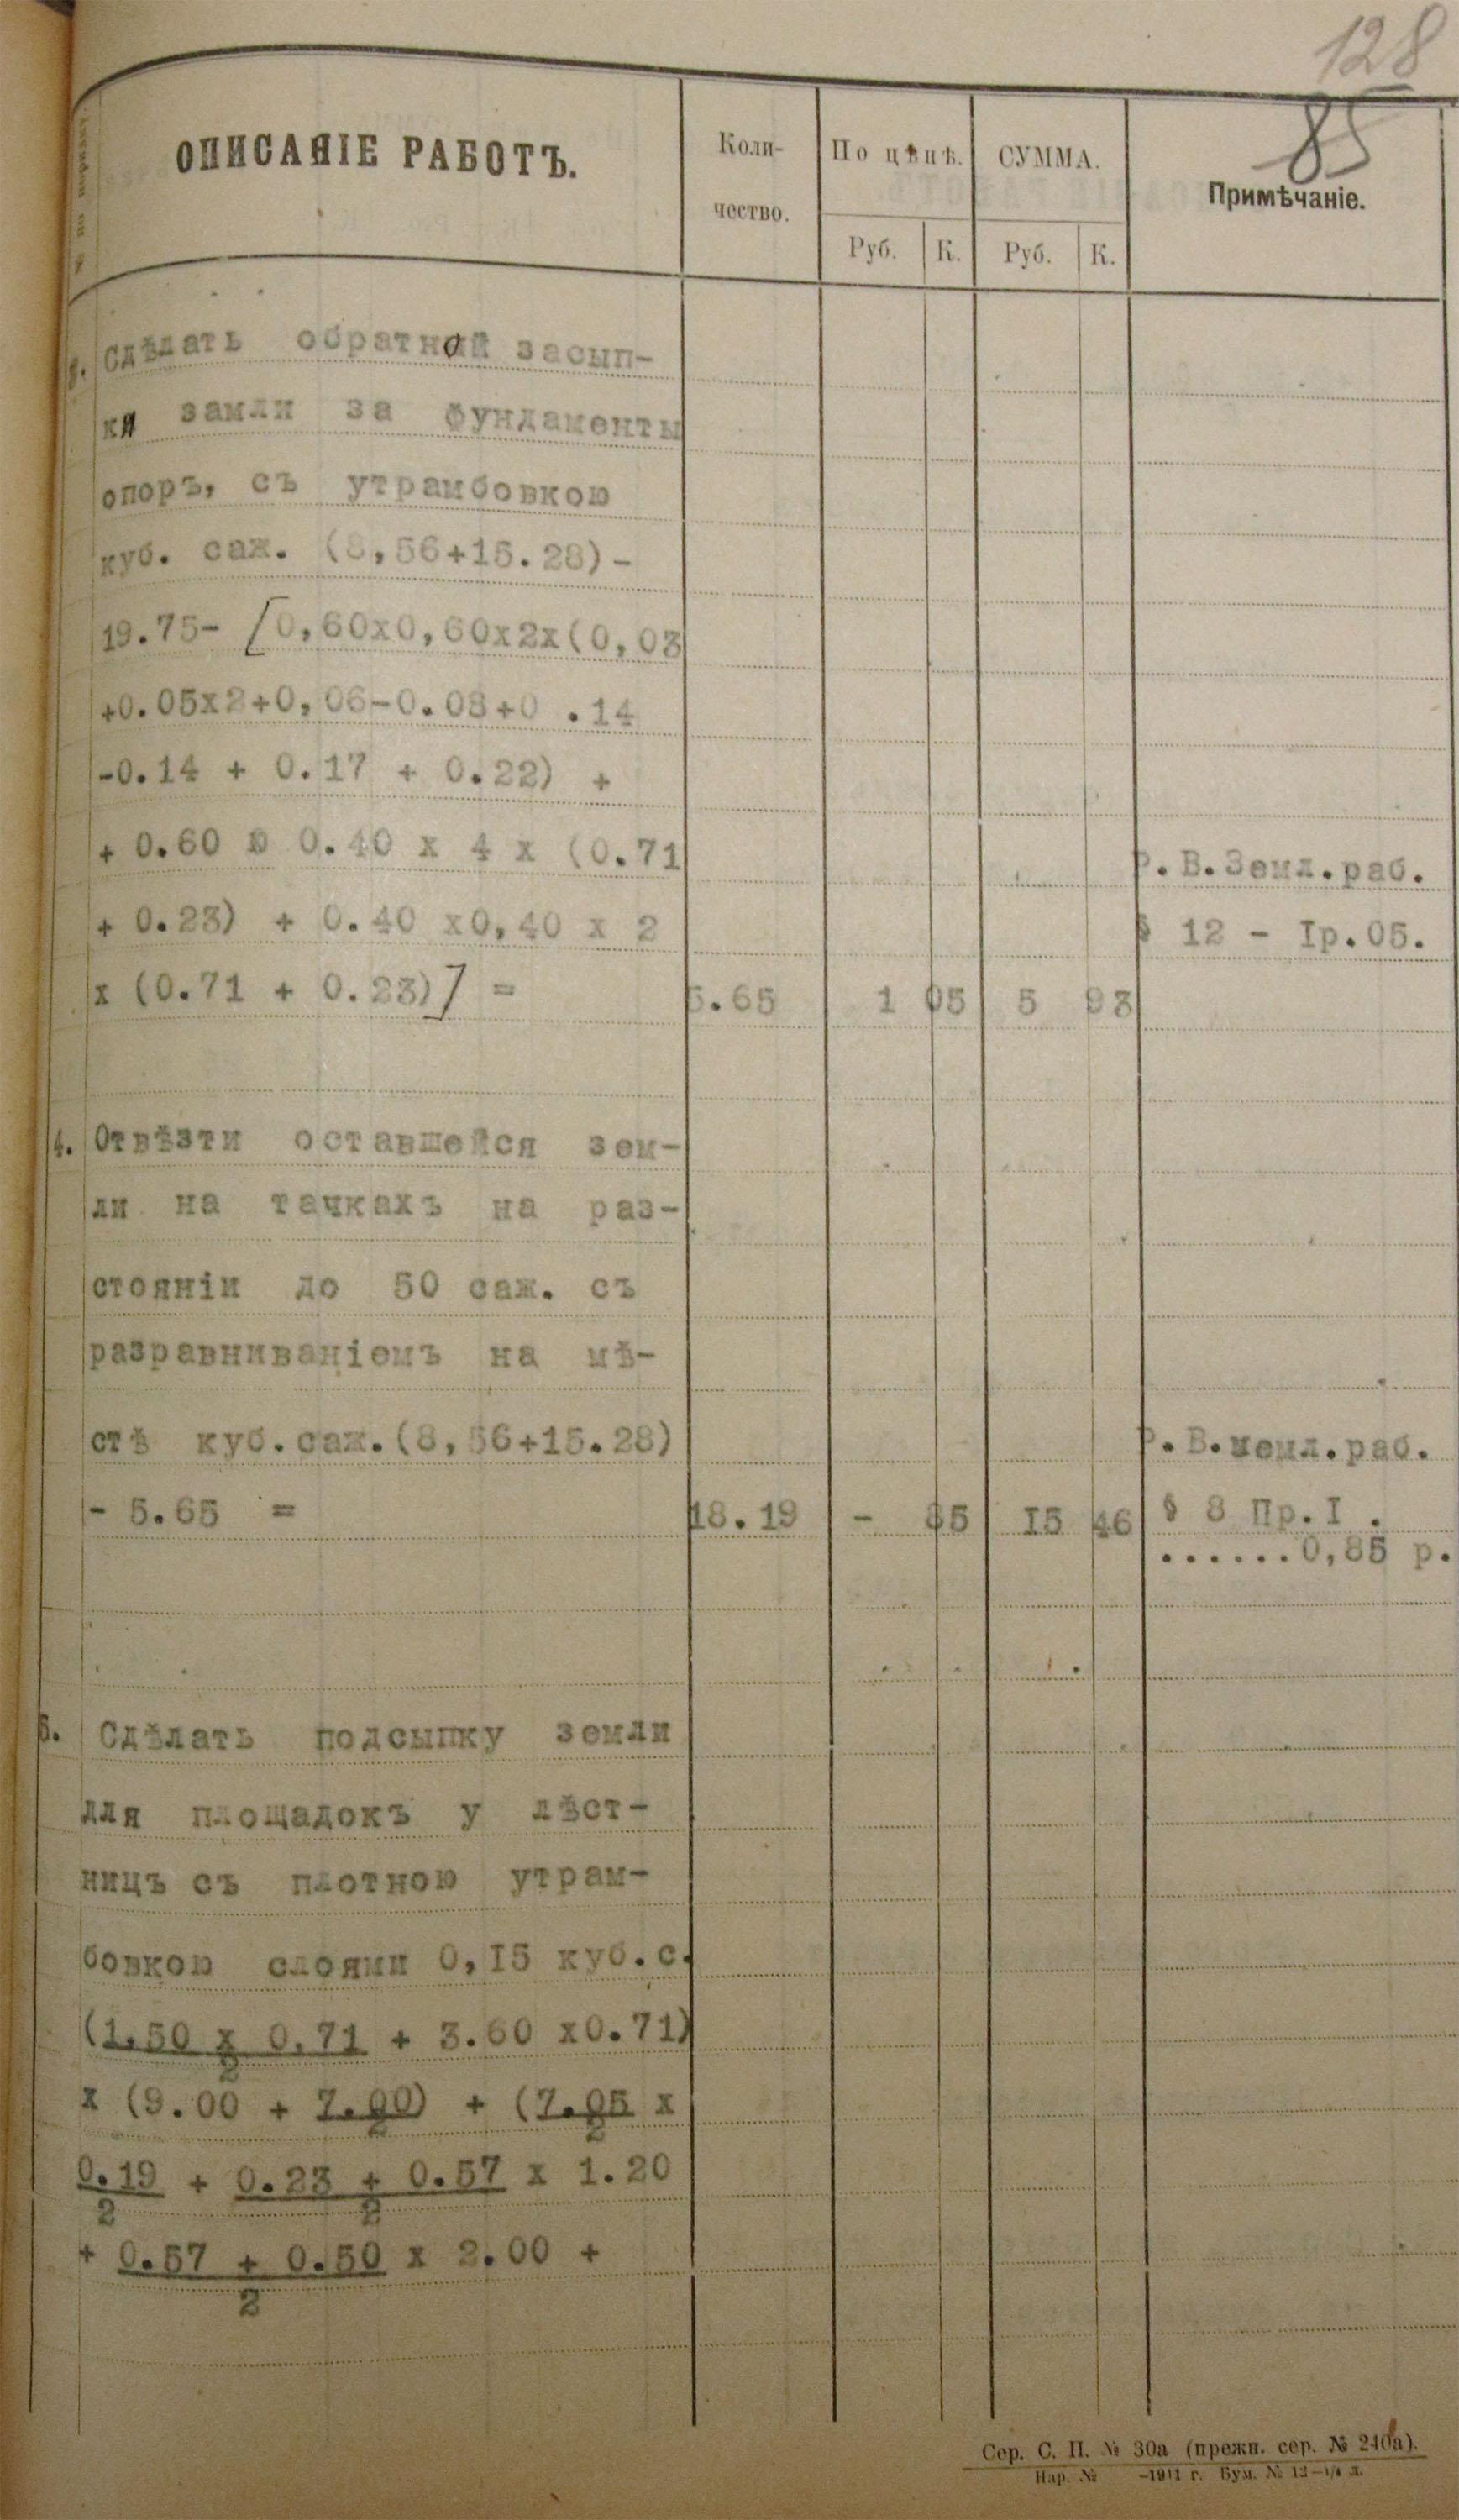 128
85
ОПИСАНІЕ РАБОТЪ.
Коли-
чество.
По цѣнѣ.
СУММА.
Примѣчаніе.
Руб. К. Руб. К.
Сдѣлать обратной засып-
ки замли за фундаменты
опоръ, съ утрамбовкою
куб. саж. (8,56+15.28)-
19.75- [0,60х0,60х2х(0,03
+0.05х2+0,06-0.08+0 .14
-0.14 + 0.17 + 0.22) +
+ 0.60 ю 0.40 х 4 х (0.71
Р. В.Земл.раб.
+ 0.23) + 0.40 х0,40 х 2
§ 12 - Iр.05.
х (0.71 + 0.23)] = 5.65 1 05 5 93
4. Отвѣзти оставшейся зем-
ли на тачкахъ на раз-
стояніи до 50 саж. съ
разравниваніемъ на мѣ-
стѣ куб.саж.(8,56+15.28)
Р. В.земл.раб.
- 5.65 = 18.19 - 85 I5 46 § 8 Пр.I .
......0,85 р.
5. Сдѣлать подсыпку земли
для площадокъ у лѣст-
ницъ съ плотною утрам-
бовкою слоями 0,I5 куб.с.
(1.50 х 0.71 + 3.60 х0.71)
2
х (9.00 + 7.00) + (7.05 х
2 2
0.19 + 0.23 + 0.57 х 1.20
2 2
+ 0.57 + 0.50 х 2.00 +
2
Сер. С. П. № 30а (прежн. сер. № 240а).
Нар. № -1911 г. Бум. № 12-1/4 л.